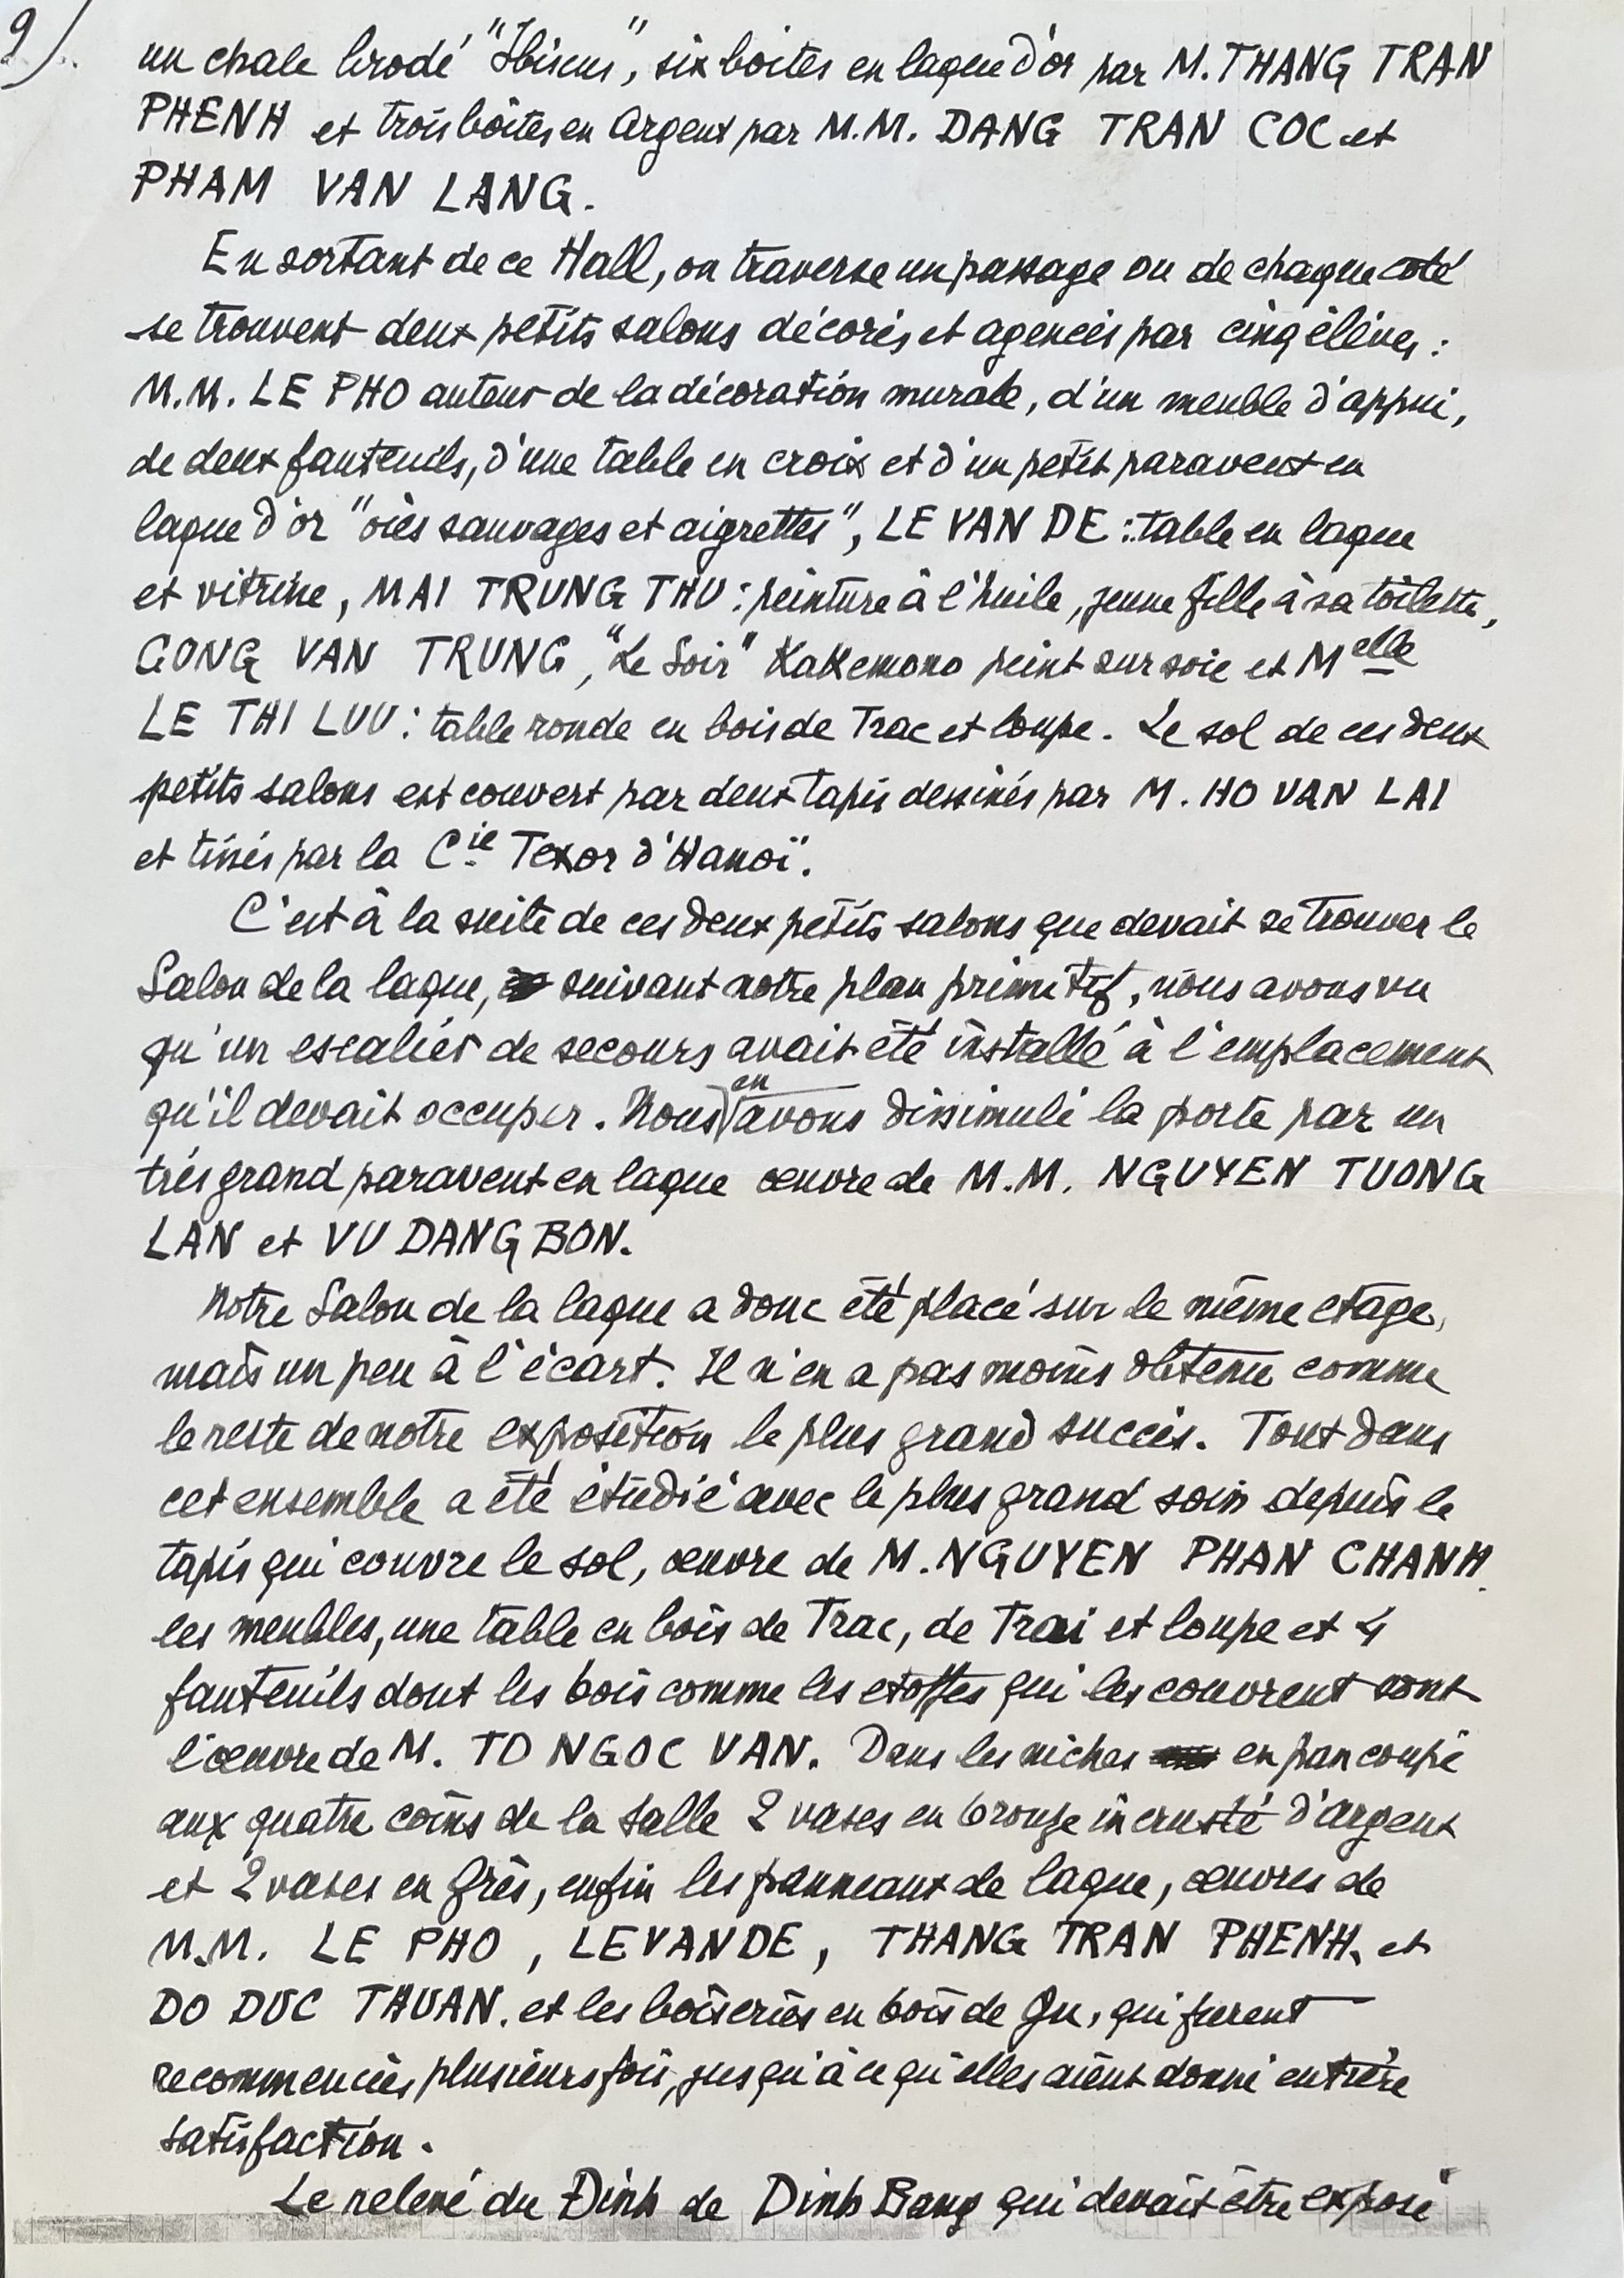 9/.
un chale brodé "Ibiscus", six boites en laque d'or par M. THANG TRAN
PHENH et trois boîtes en Argent par M.M. DANG TRAN COC et
PHAM VAN LANG.
En sortant de ce Hall, on traverse un passage ou de chaque coté
se trouvent deux petits salons décorés et agencés par cinq élèves :
M.M. LE PHO auteur de la décoration murale, d'un meuble d'appui,
de deux fauteuils, d'une table en croix et d'un petit paravent en
laque d'or "oies sauvages et aigrettes", LE VAN DE : table en laque
et vitrine, MAI TRUNG THU : peinture à l'huile, jeune fille à sa toilette,
CONG VAN TRUNG, "Le Soir" Kakemono peint sur soie et Melle
LE THI LUU : table ronde en bois de Trac et loupe. Le sol de ces deux
petits salons est couvert par deux tapis dessinés par M. HO VAN LAI
et tissés par la Cie Texor d'Hanoï.
C'est à la suite de ces deux petits salons que devait se trouver le
Salon de la laque, suivant notre plan primitif, nous avons vu
qu'un escalier de secours avait été installé à l'emplacement
qu'il devait occuper. Nous en avons dissimulé la porte par un
très grand paravent en laque œuvre de M.M. NGUYEN TUONG
LAN et VU DANG BON.
Notre Salon de la laque a donc été placé sur le même etage,
mais un peu à l'écart. Il n'en a pas moins obtenu comme
le reste de notre exposition le plus grand succès. Tout dans
cet ensemble a été étudié avec le plus grand soin depuis le
tapis qui couvre le sol, œuvre de M. NGUYEN PHAN CHANH
les meubles, une table en bois de Trac, de Trai et loupe et 4
fauteuils dont les bois comme les etoffes qui les couvrent sont
l'œuvre de M. TO NGOC VAN. Dans les niches en pan coupé
aux quatre coins de la salle 2 vases en bronze incrusté d'argent
et 2 vases en Grès, enfin les panneaux de laque, œuvres de
M.M. LE PHO, LE VAN DE, THANG TRAN PHENH, et
DO DUC THUAN. et les boiseries en bois de Gu, qui furent
recommencées plusieurs fois, jusqu'à ce qu'elles aient donné entière
satisfaction.
Le relevé du Đinh de Dinh Bang qui devait être exposé